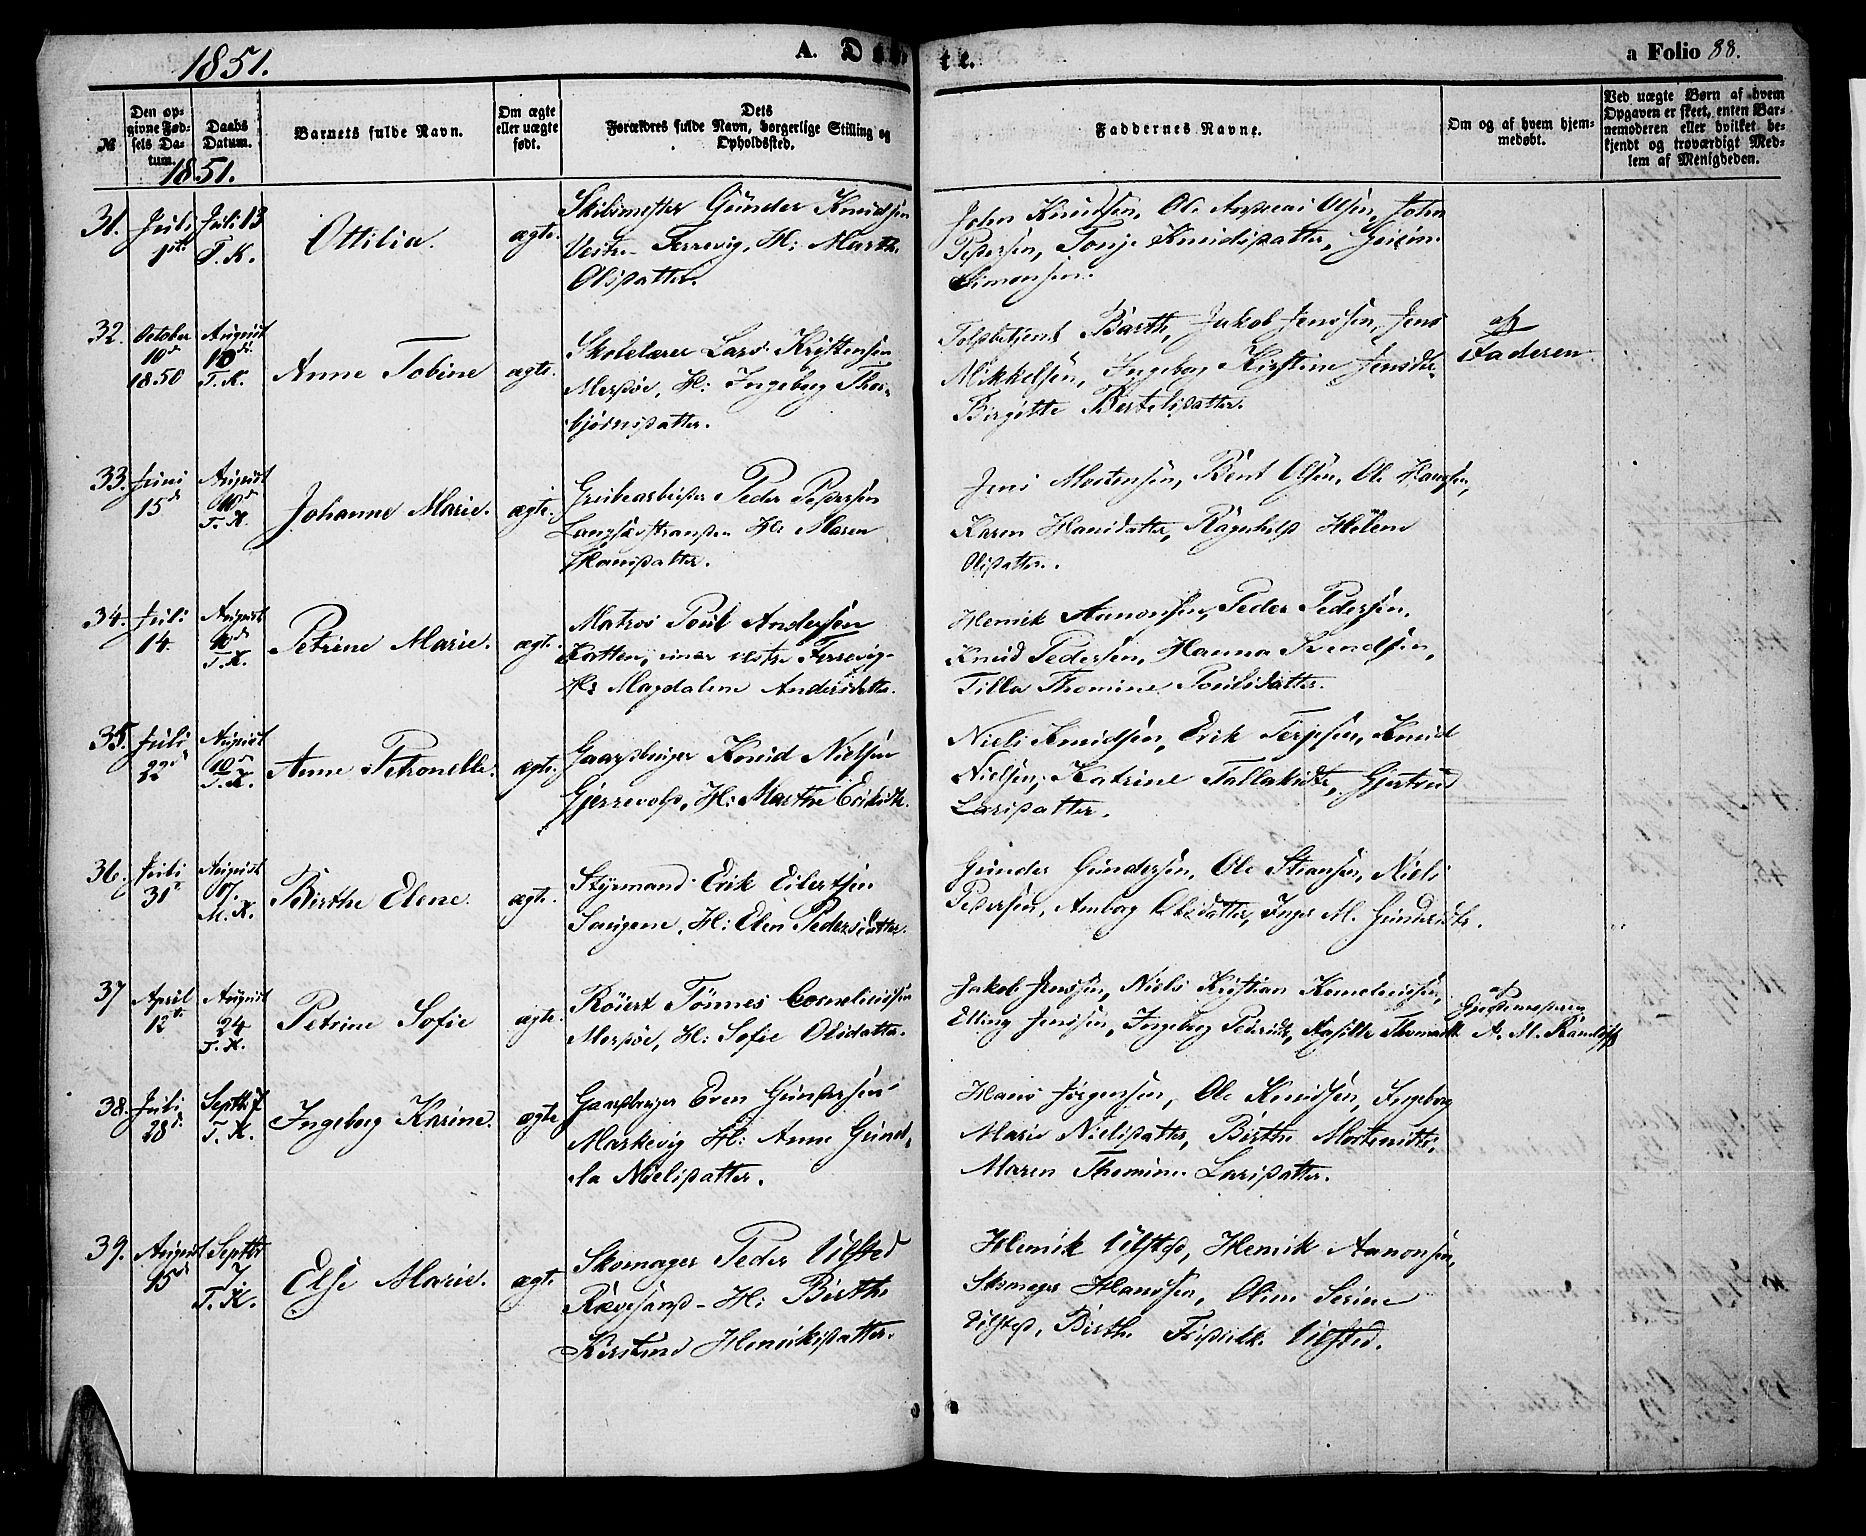 1851.
A. Døb
te.
a Folio 88.
№
Den opgivne Fødsels Datum.
Daabs Datum.
Barnets fulde Navn.
Om ægte eller uægte født.
Dets Forældres fulde Navn, borgerlige Stilling og Opholdssted.
Faddernes Navne.
Om og af hvem hjemmedøbt.
Ved uægte Børn af hvem Opgaven er skeet, enten Barnemoderen eller hvilket bekjendt og troværdigt Medlem af Menigheden.
1851.
31. Juli 1ste Juli 13 T. K. Ottilia. ægte.
Gunder Knudsen
Vestre Terrevig, H: Marthe
Olsdatter.
John Knudsen, Ole Andreas Olsen, John
Pedersen, Tonje Knudsdatter,
Simonsen.
32. October 10de 1850 August 10de T. K. Anne Tobine ægte.
Skolelærer Lars Kristensen
Merdøe, H: Ingeborg Thor-
bjørnsdatter.
Toldbetjent Barth, Jakob Jenssen, Jens
Mikkelsen, Ingeborg Kirstine Jensdtr
Birgitte Bertelsdatter.
af
Faderen.
33. Juni 15de August 10de T. K. Johanne Marie. ægte.
Grubearbeider Peder Pedersen
H: Maren
Hansdatter.
Jens Mortensen, Bent Olsen, Ole Hansen,
Karen Hansdatter, Ragnhild Helene
Olsdatter.
34. Juli 14. August 10de T. K. Petrine Marie. ægte.
Matros Poul Andersen
Katten, vestre Terrevig
H: Magdalene Andersdatter.
Henrik Aanonsen, Peder Pedersen.
Knud Pedersen, Hanna Svendsen,
Tilla Thomine Poulsdatter.
35. Juli 22de August 10de T. K. Anne Petronelle. ægte.
Gaardbruger Knud Nielsen
Gjerrevold, H: Marthe Eriksdtr.
Niels Knudsen, Erik Terjesen, Knud
Nielsen, Katrine Tallaksdtr, Gjertrud
Larsdatter.
36. Juli 31te August 17. M. K. Birthe Elene. ægte.
Styrmand Erik Eilertsen
Songene, H: Elen Pedersdatter.
Gunder Gundersen, Ole Stiansen, Niels
Pedersen, Amborg Olsdatter, Inger M. Gundersdtr.
37 April 12te August 24 T. K. Petrine Sofie ægte.
Røiert Tønnes Corneliussen
Merdøe, H: Sofie Olsdatter.
Jakob Jenssen, Niels Kristian Korneliussen,
Elling Jenssen, Ingeborg Pedersdtr, Thomasdtr
af
A. M.
38. Juli 28de Septbr 7 T. K. Ingeborg Karine. ægte
Gaardbruger Even Gundersen
Markevig H: Anne Gund-
la Nielsdatter.
Hans Jørgensen, Ole Knudsen, Ingeborg
Marie Nielsdatter, Birthe Mortensdtr,
Maren Thomine Larsdatter.
39. August 15de Septbr 7 T. K. Else Marie. ægte.
Skomager Peder Ulfsted
Rævesand – H: Birthe
Kirstine Henriksdatter.
Henrik Ulfsted, Henrik Aanonsen,
Skomager Hanssen, Oline Serine
Ulfsted, Birthe Ulfsted.